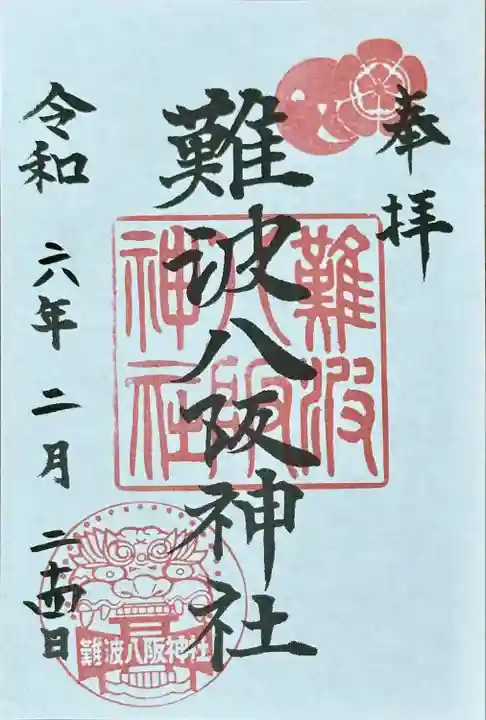 奉拝
難波八阪神社
令和 六年 二月 二十四日
難波
八阪
神社
難波八阪神社